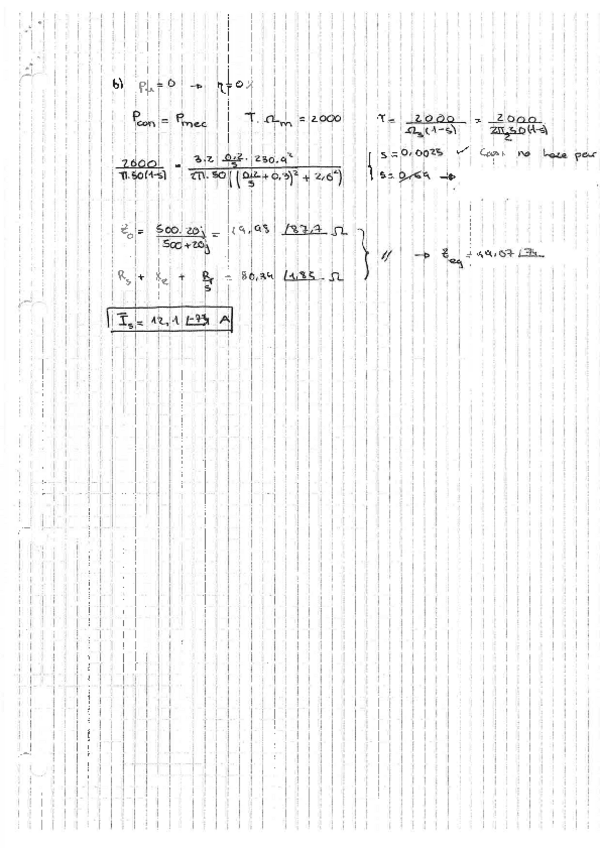 b) Pu = 0 → η = 0%
Pcon = Pmec T. Ωm = 2000 T = 2000 / Ωs(1-s) = 2000 / (2π.50/2)(1-s)
2000 / π.50(1-s) = 3.2 0,2/s . 230.9² / 2π.50 ((0,2/s + 0,3)² + 2,0²) { s = 0,0025 ✓ Casi no hace par
s = 0,64 →
Z₀ = 500.20j / 500+20j = 19,98 ∠87,7 Ω
Rs + Xe + Rr/s = 80,34 ∠1,85 Ω } // → Zeq = 19,07
Īs = 12,1 ∠-73 A